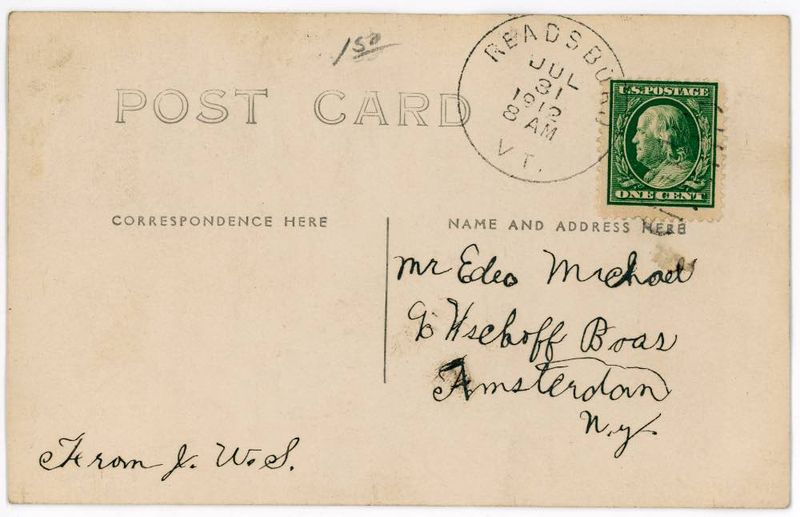 1 50
POST CARD
READSBORO
JUL
31
1912
8 AM
VT.
U.S. POSTAGE
ONE CENT
CORRESPONDENCE HERE
NAME AND ADDRESS HERE
Mr Edeo Michael
℅ Boas
Amsterdam
N.Y.
From J. W. S.